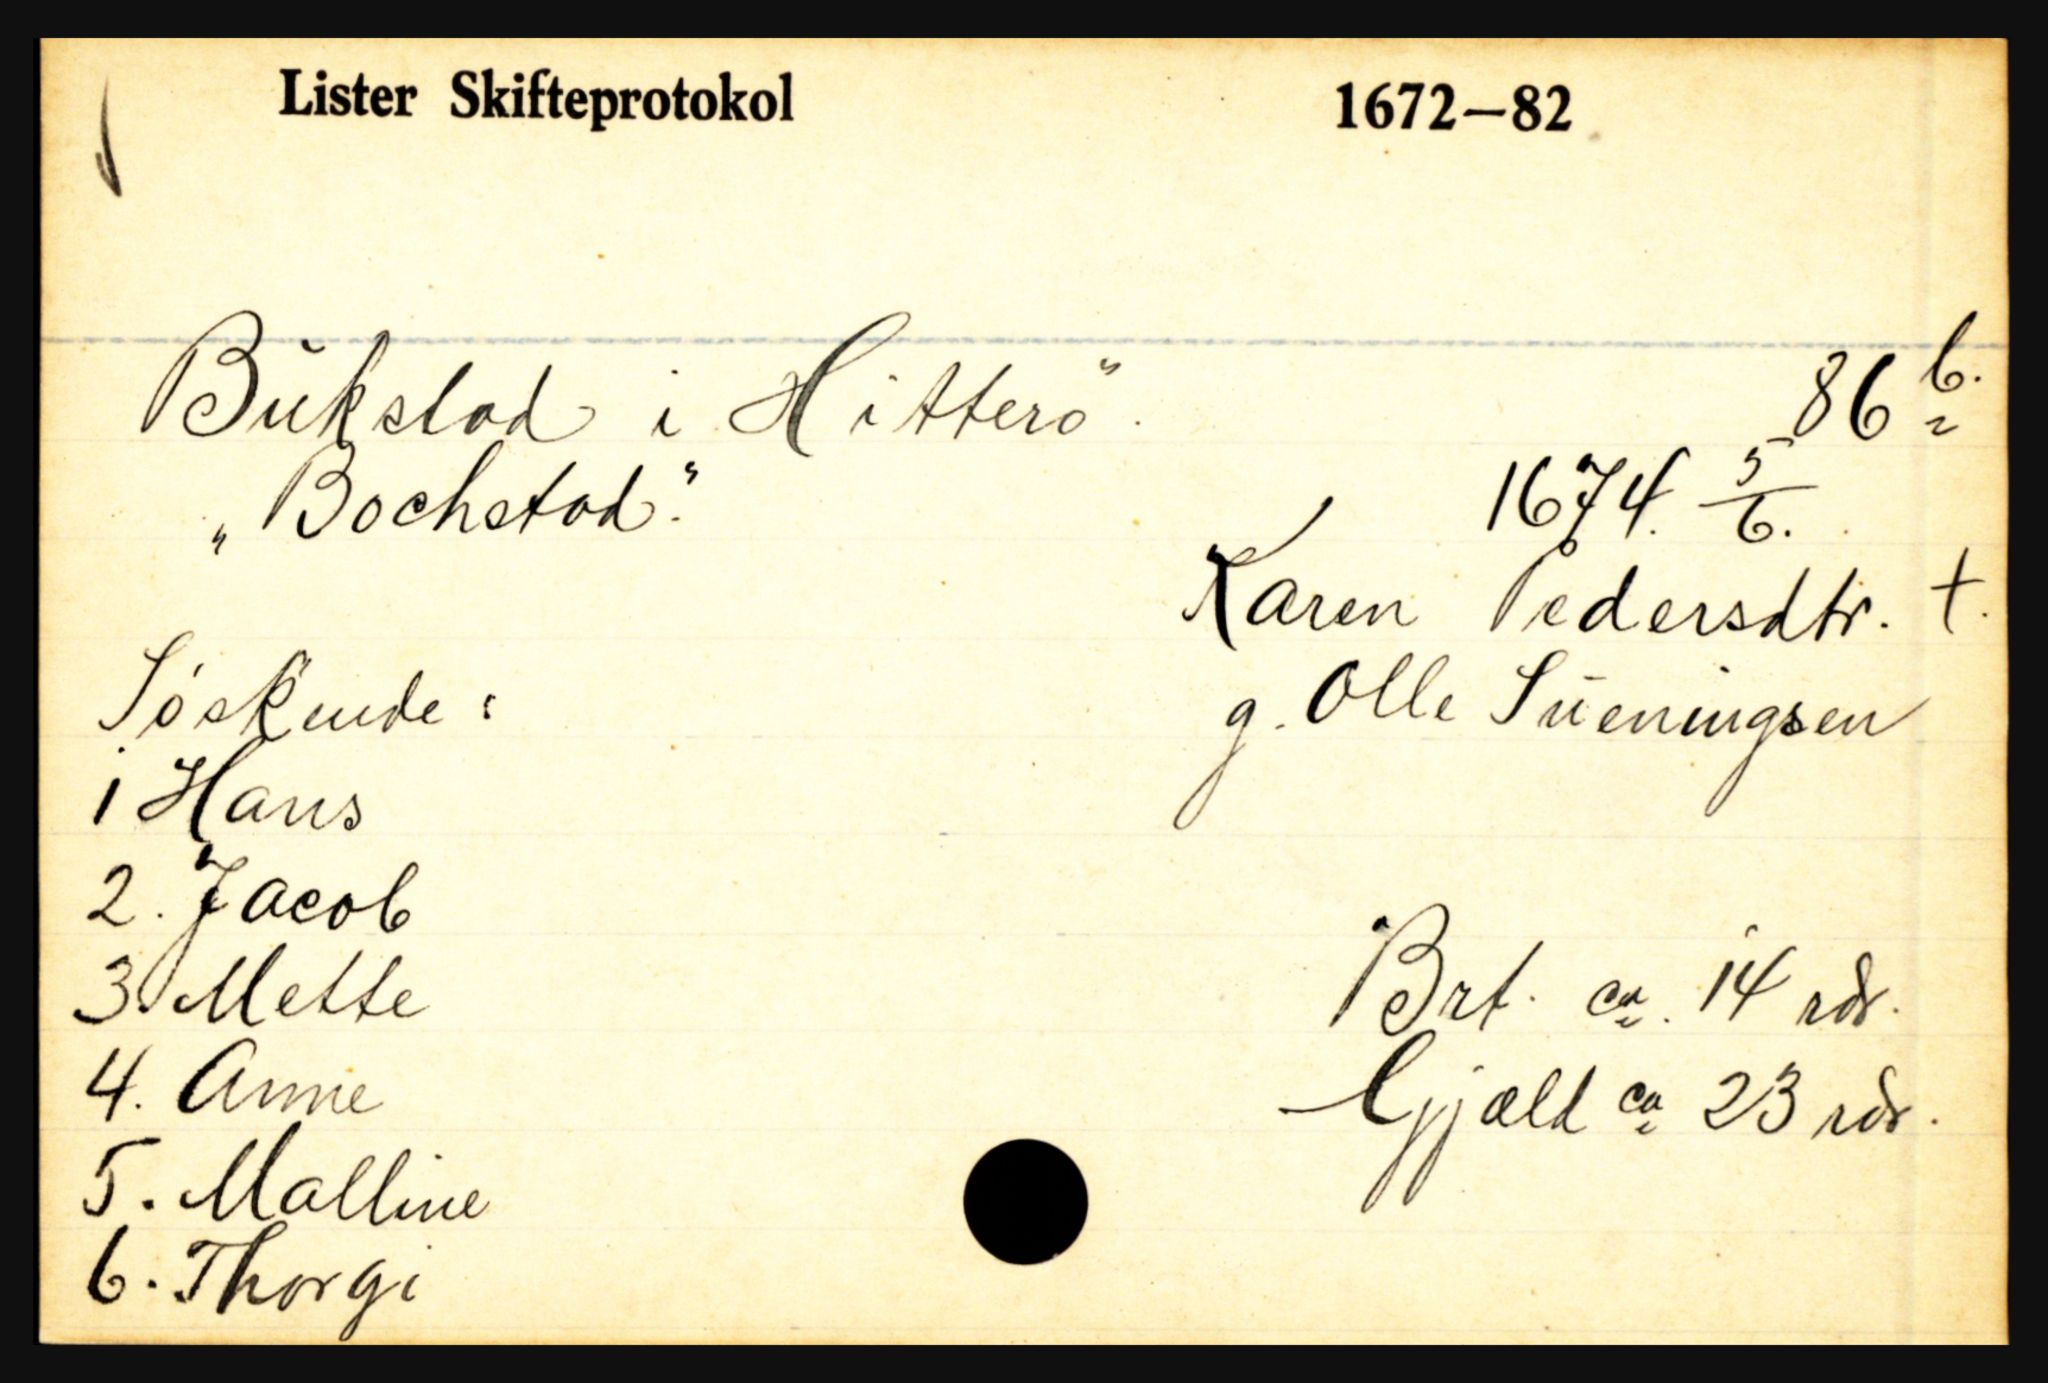 Lister Skifteprotokol 1672–82
Bukstad i Hitterö". 86 b.
"Bochstad".
1674. 5/6.
Karen Pedersdtr. †.
g. Olle Sueningsen
Söskende:
1 Hans
2. Jacob
3. Mette
4. Anne
5. Malline
6. Thorgi
Brt. ca. 14 rdr.
Gjæld ca 23 rdr.